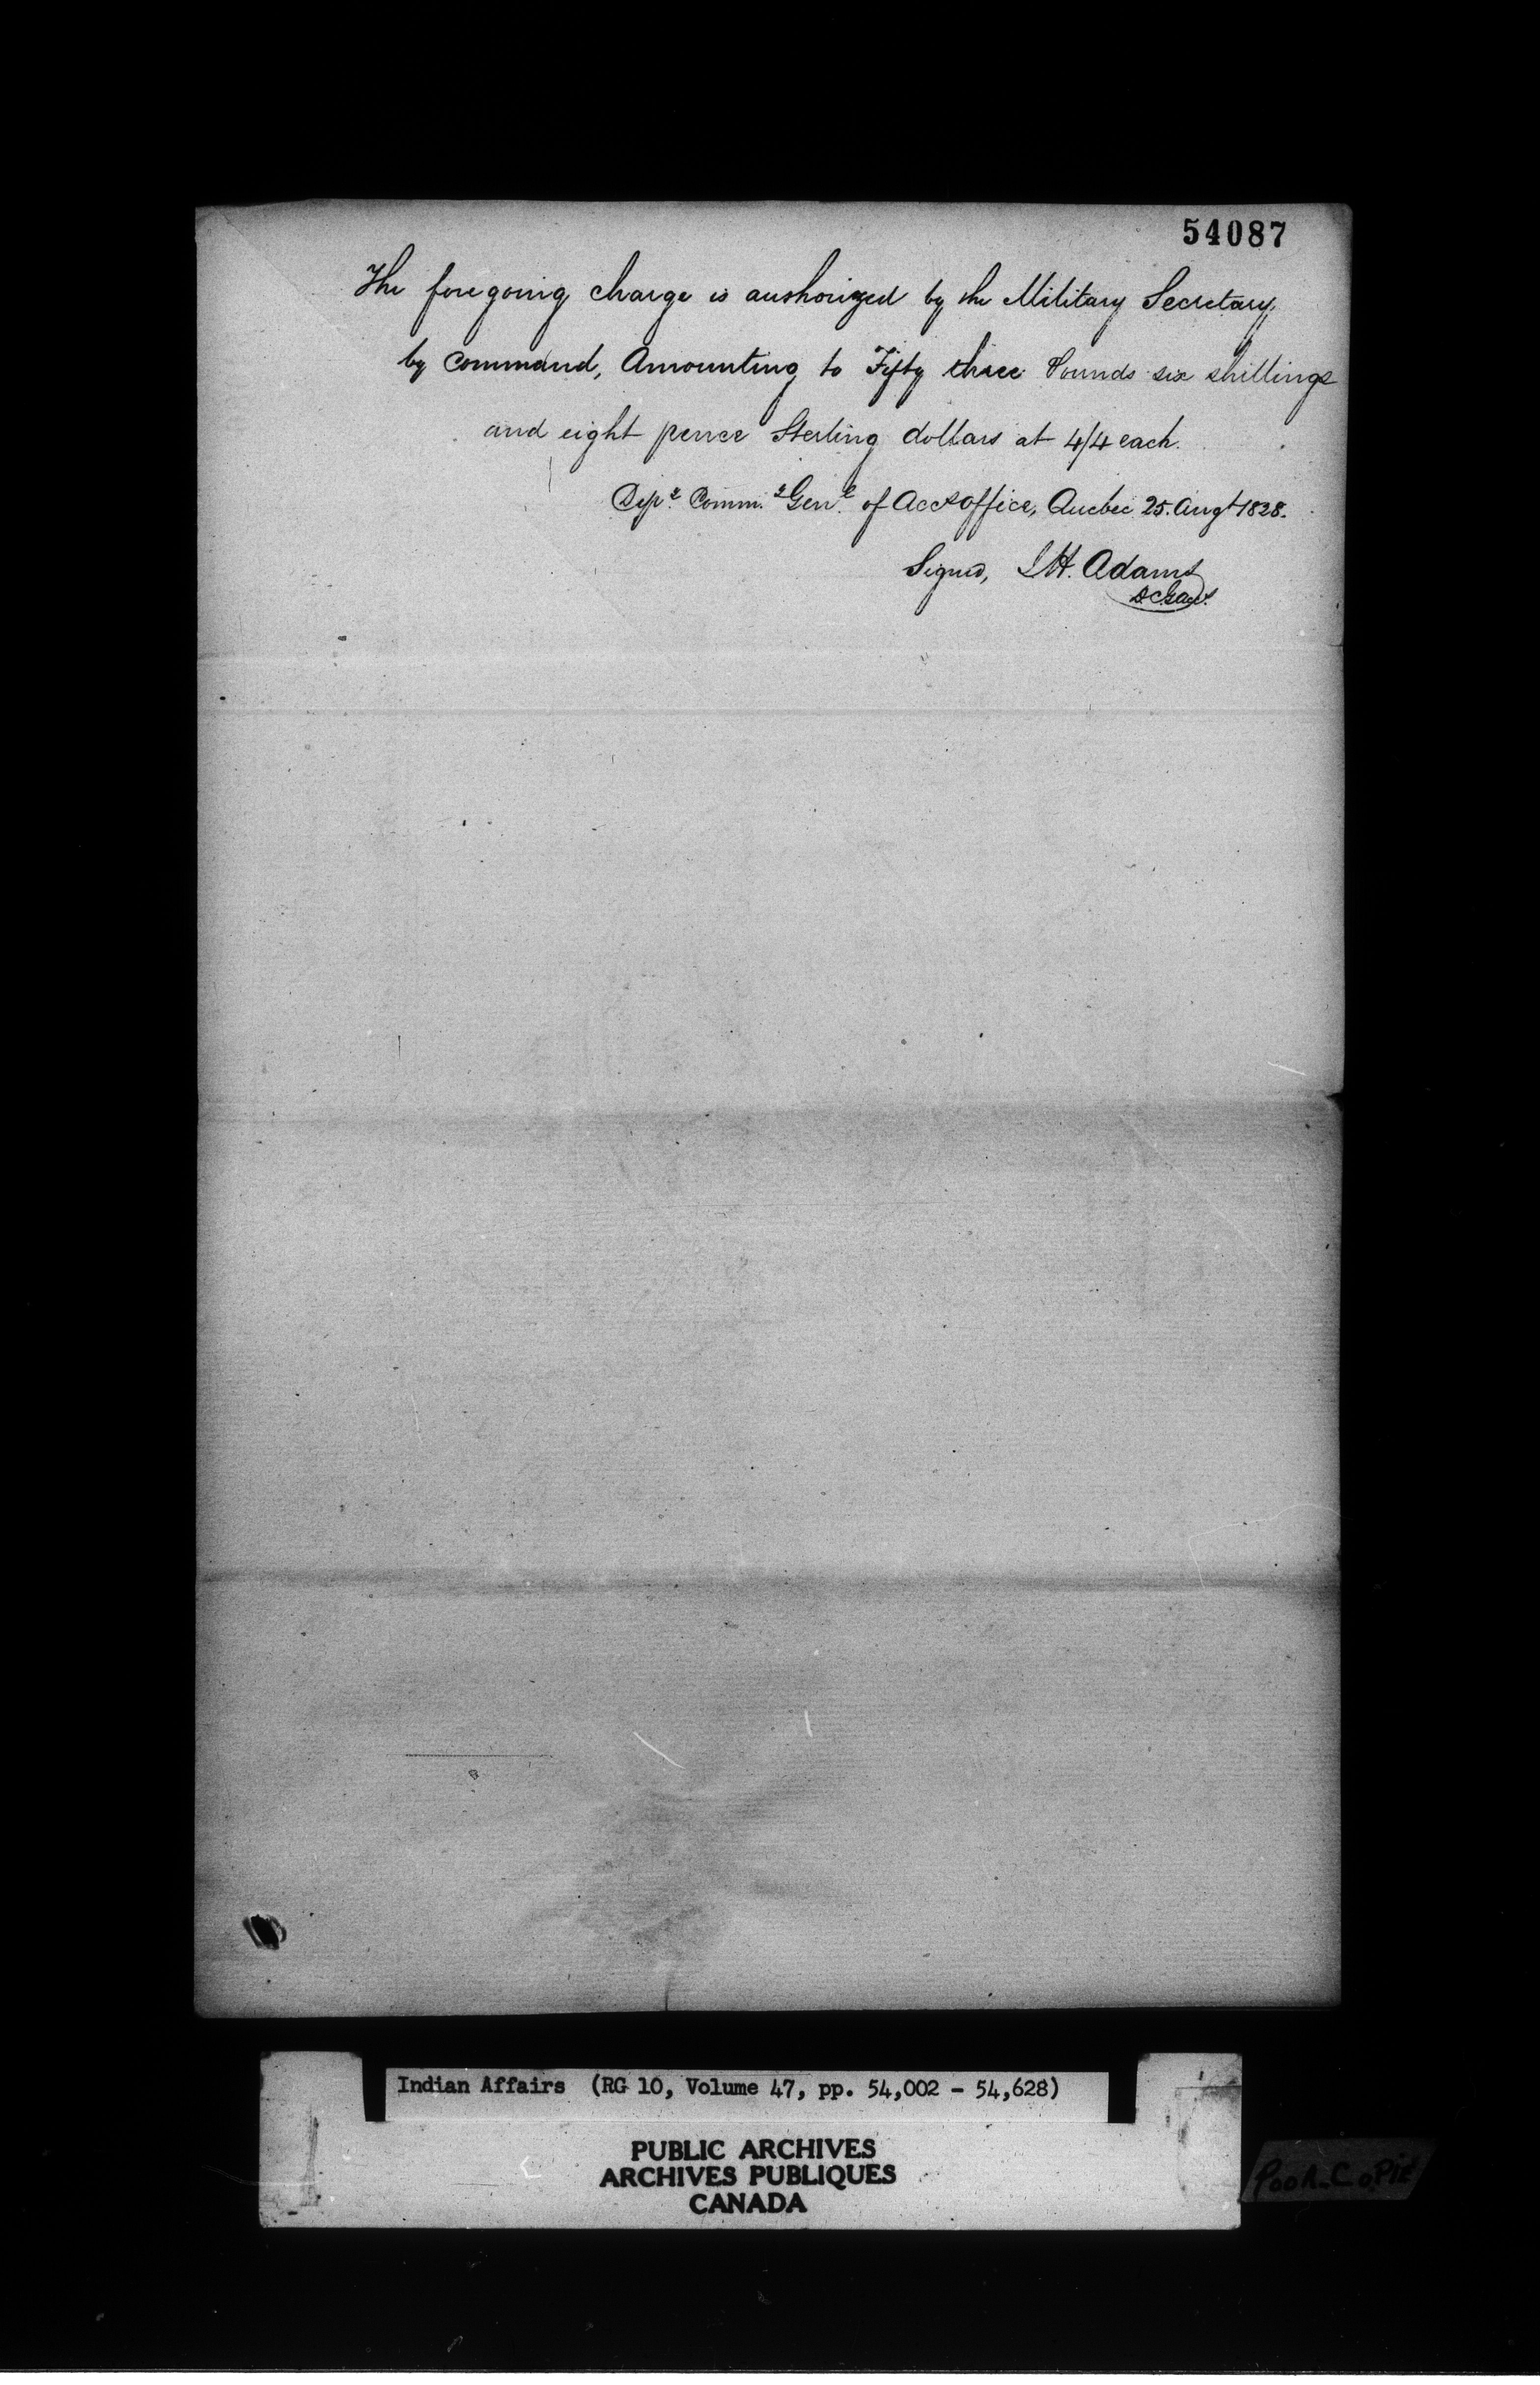 54087
The foregoing charge is authorized by the Military Secretary,
by Command, Amounting to Fifty three Pounds six shillings
and eight pence Sterling dollars at 4/4 each.
Depy. Commy. Genl. of Accts office, Quebec 25. Augt 1828.
Signed, H. Adams
Indian Affairs (RG 10, Volume 47, pp. 54,002 - 54,628)
PUBLIC ARCHIVES
ARCHIVES PUBLIQUES
CANADA
POOR COPIE